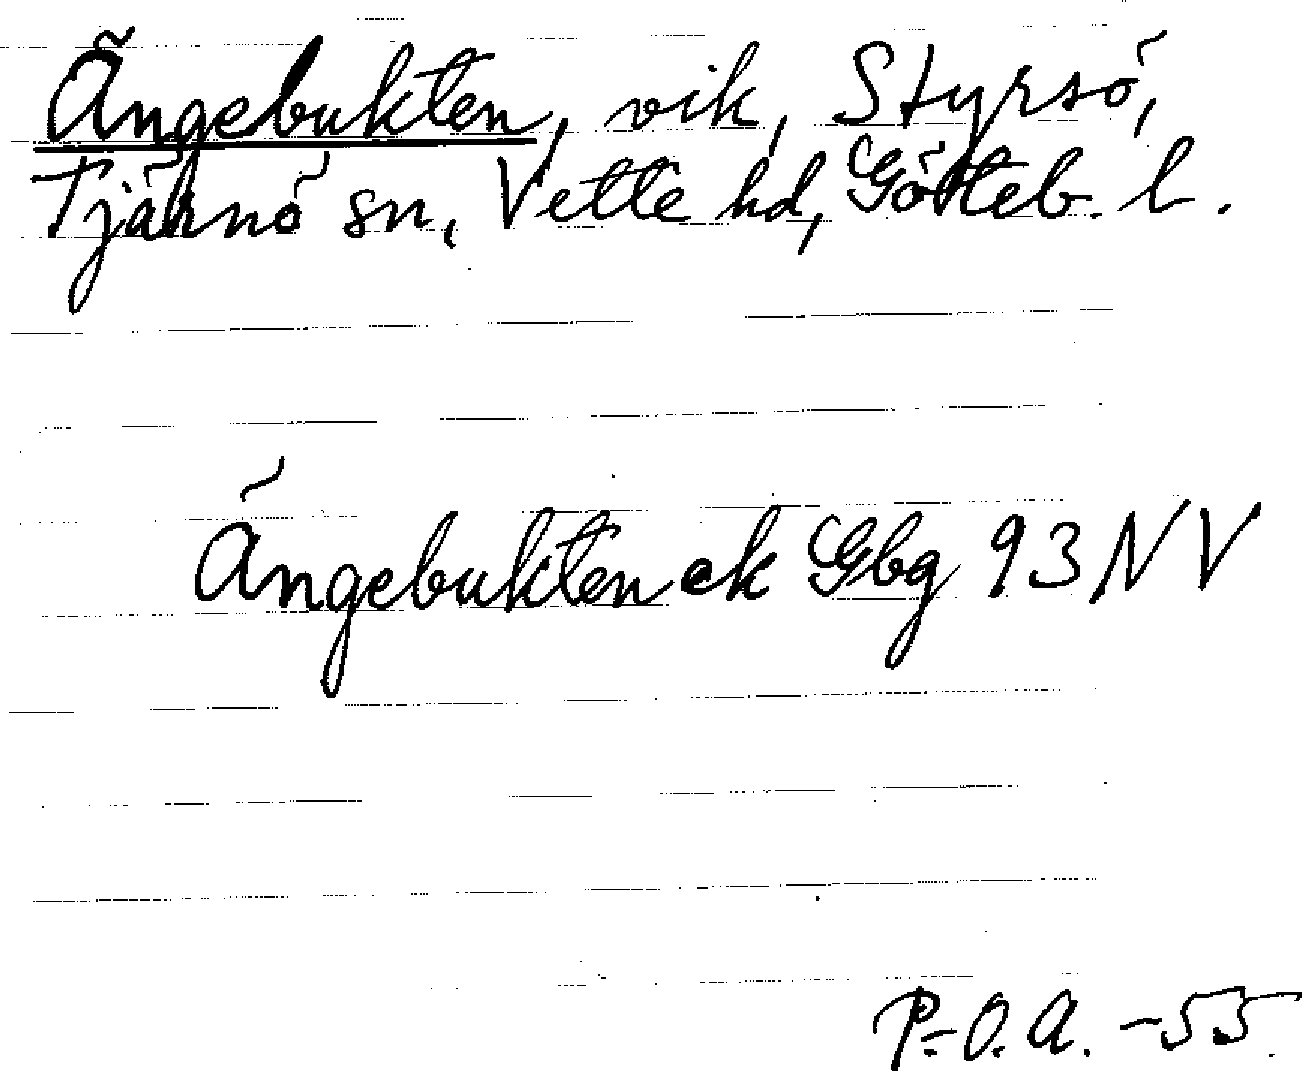 Ängebukten, vik, Styrsö,
Tjärnö sn, Vette hd, Götteb. l.
Ängebukten ek Gbg 93 NV
P.-O. A. -55.